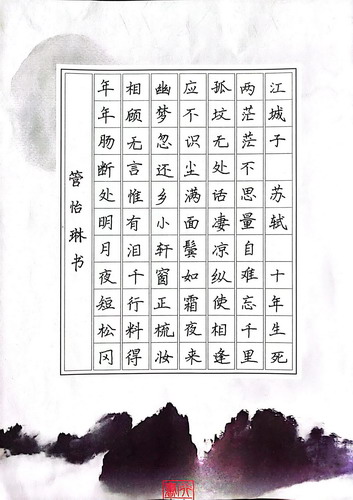 江城子 苏轼 十年生死
两茫茫不思量自难忘千里
孤坟无处话凄凉纵使相逢
应不识尘满面鬓如霜夜来
幽梦忽还乡小轩窗正梳妆
相顾无言惟有泪千行料得
年年肠断处明月夜短松冈
管怡琳书